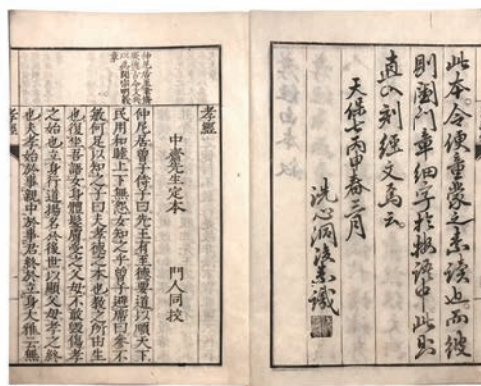 此本令便童蒙之素読也而彼
則閨門章細字於按語中此則
直入刻經文焉云
天保七丙申春三月
洗心洞後素識
仲尼居
章
孝經
中齋先生定本 門人同校
仲尼居曾子侍子曰先王有至德要道以順天下
民用和睦上下無怨女知之乎曾子避席曰參不
敏何足以知之子曰夫孝德之本也教之所由生
也復坐吾語女身體髮膚受之父母不敢毀傷孝
之始也立身行道揚名於後世以顯父母孝之終
也夫孝始於事親中於事君終於立身大雅云無
孝經